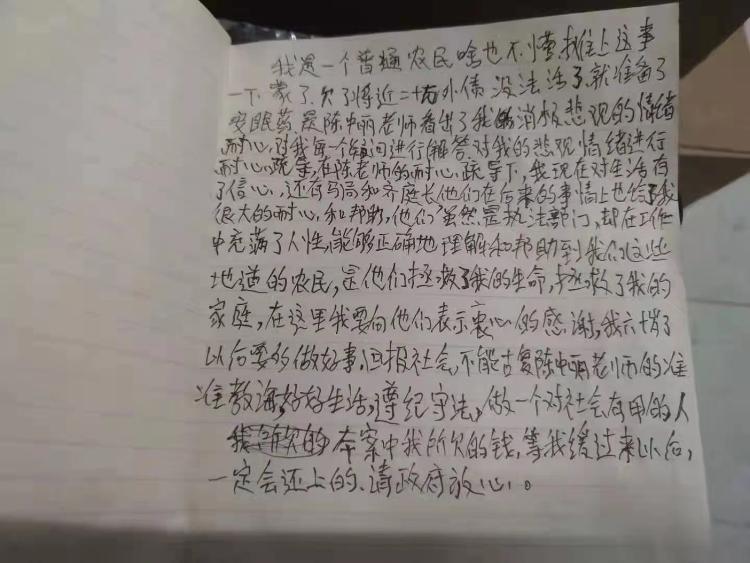 我是一个普通农民啥也不懂,摊上这事
一下蒙了、欠了将近二十万外债没法活了,就准备了
安眠药,是陈中丽老师看出了我的消极悲观的情绪
耐心对我每一个疑问进行解答对我的悲观情绪进行
耐心疏导,在陈老师的耐心疏导下,我现在对生活有
了信心,还有马局和齐庭长他们在后来的事情上也给了我
很大的耐心,和帮助,他们虽然是执法部门,却在工作
中充满了人性,能够正确地理解和帮助到我们这些
地道的农民,是他们拯救了我的生命,拯救了我的
家庭,在这里我要向他们表示衷心的感谢,我六十岁了
以后要多做好事,回报社会,不能古复陈中丽老师的准
准教海,好好生活,遵纪守法,做一个对社会有用的人
我所欠的 本案中我所欠的钱,等我缓过来以后,
一定会还上的、请政府放心。